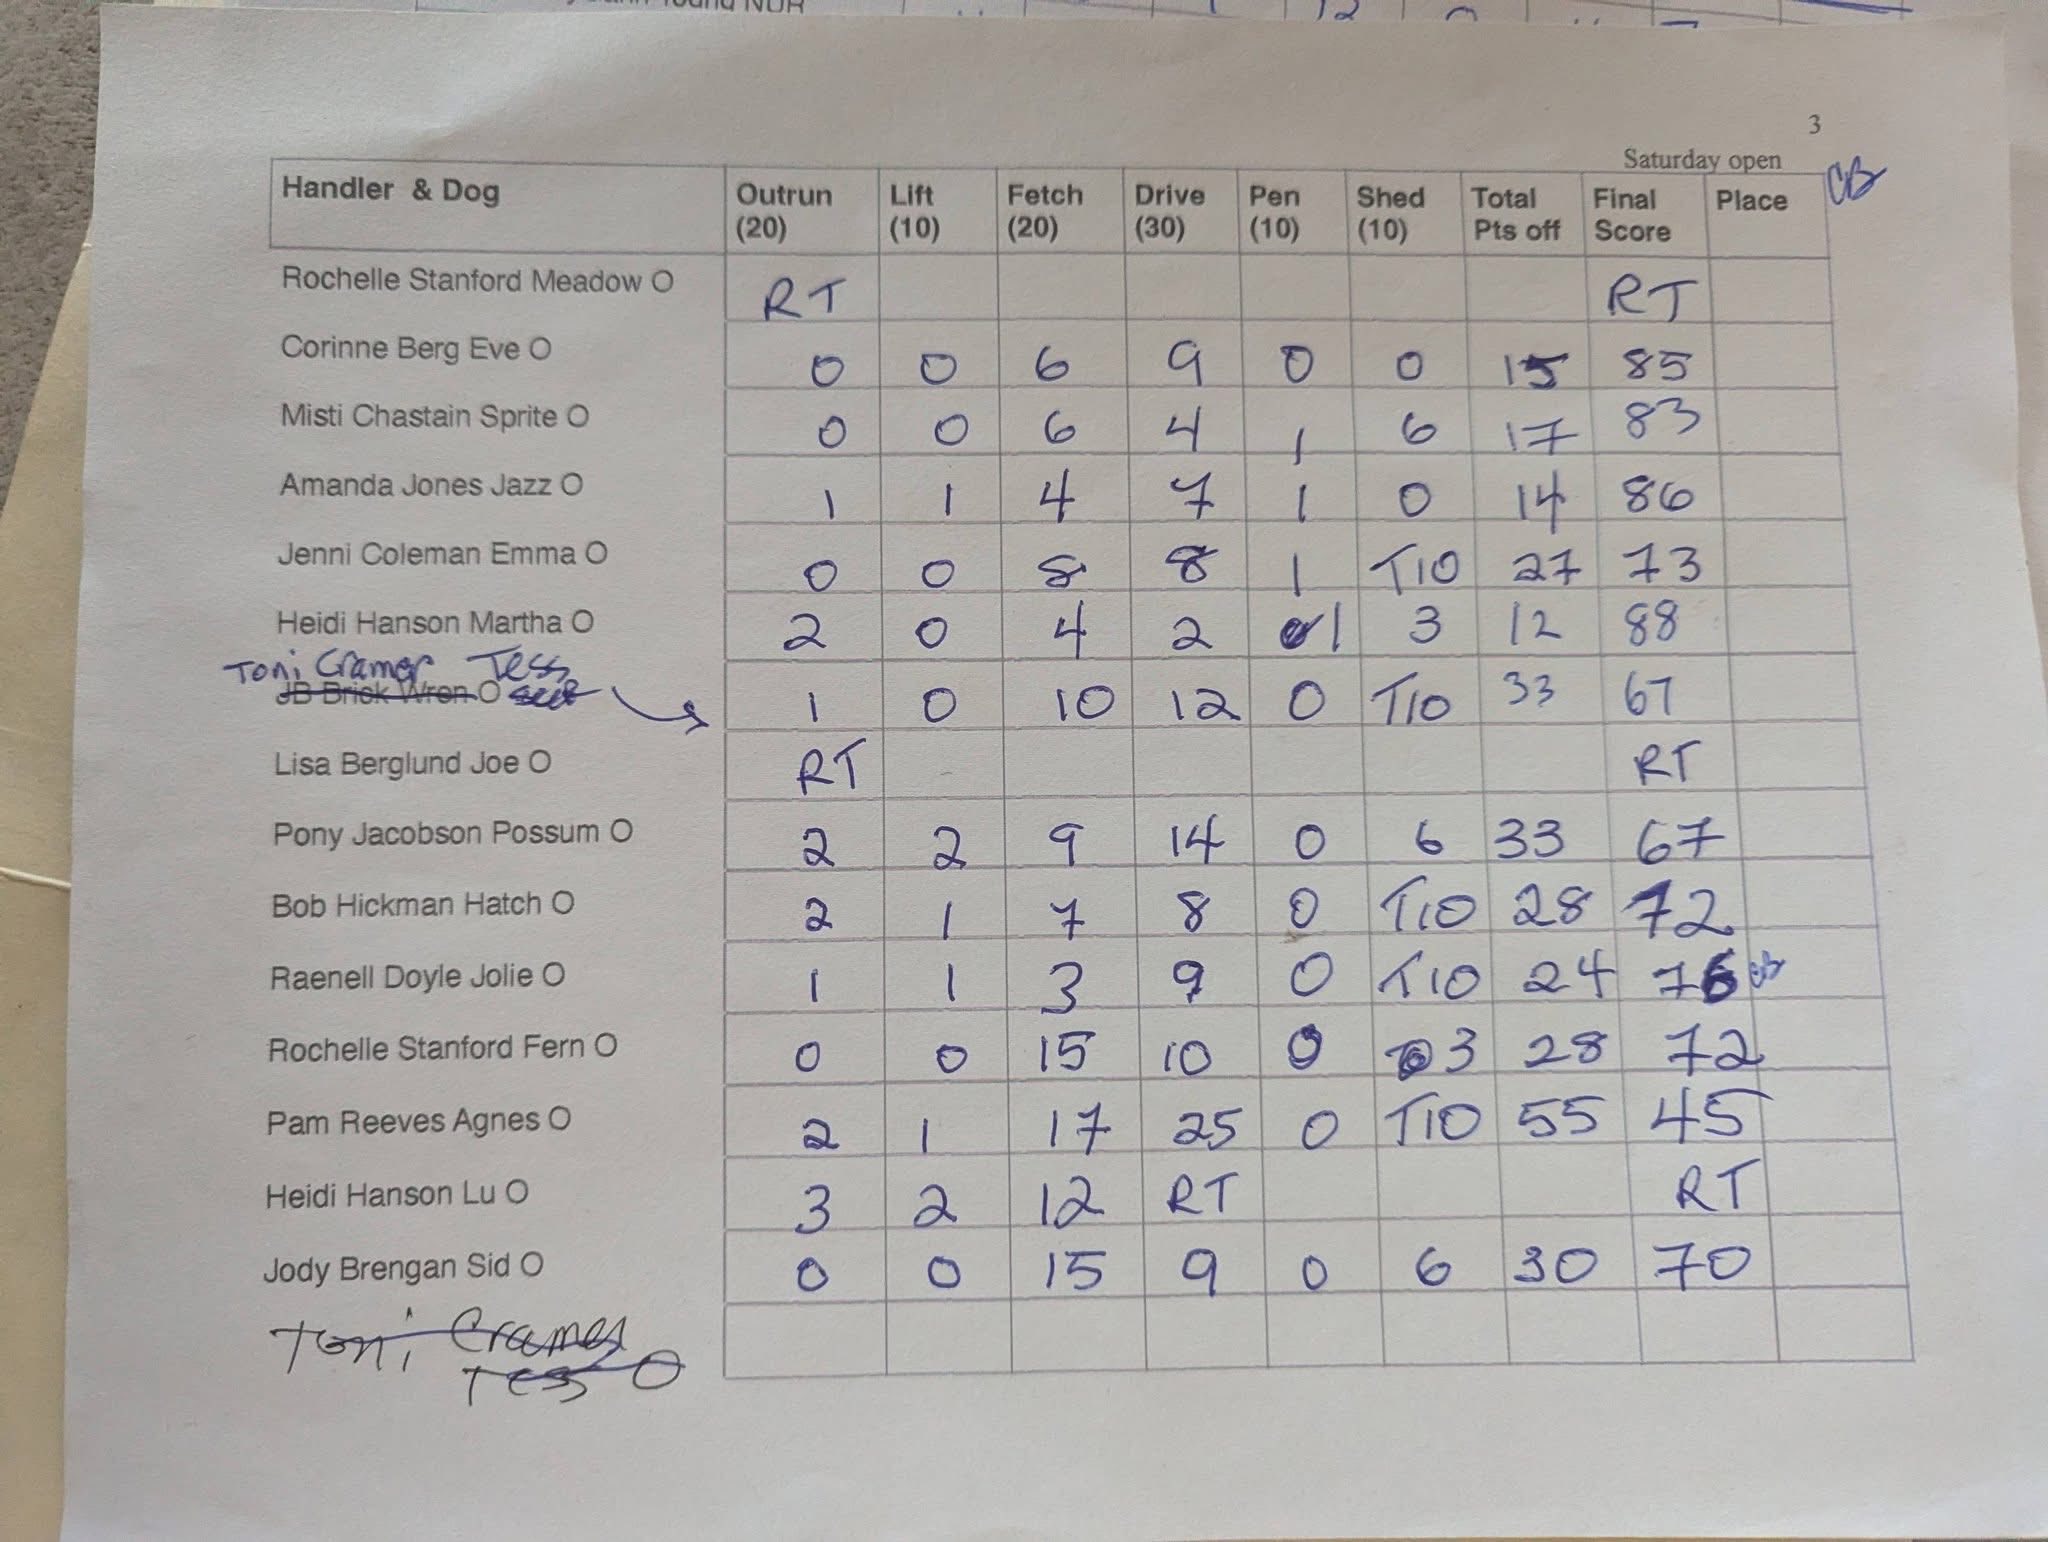 3
Saturday open
Handler & Dog Outrun (20) Lift (10) Fetch (20) Drive (30) Pen (10) Shed (10) Total Pts off Final Score Place CB
Rochelle Stanford Meadow O RT RT
Corinne Berg Eve O 0 0 6 9 0 0 15 85
Misti Chastain Sprite O 0 0 6 4 1 6 17 83
Amanda Jones Jazz O 1 1 4 7 1 0 14 86
Jenni Coleman Emma O 0 0 8 8 1 T10 27 73
Heidi Hanson Martha O 2 0 4 2 1 3 12 88
Toni Cramer Tess
JB Brick Wren O 1 0 10 12 0 T10 33 67
Lisa Berglund Joe O RT RT
Pony Jacobson Possum O 2 2 9 14 0 6 33 67
Bob Hickman Hatch O 2 1 7 8 0 T10 28 72
Raenell Doyle Jolie O 1 1 3 9 0 T10 24 76 CB
Rochelle Stanford Fern O 0 0 15 10 0 3 28 72
Pam Reeves Agnes O 2 1 17 25 0 T10 55 45
Heidi Hanson Lu O 3 2 12 RT RT
Jody Brengan Sid O 0 0 15 9 0 6 30 70
Toni Cramer
Tess O